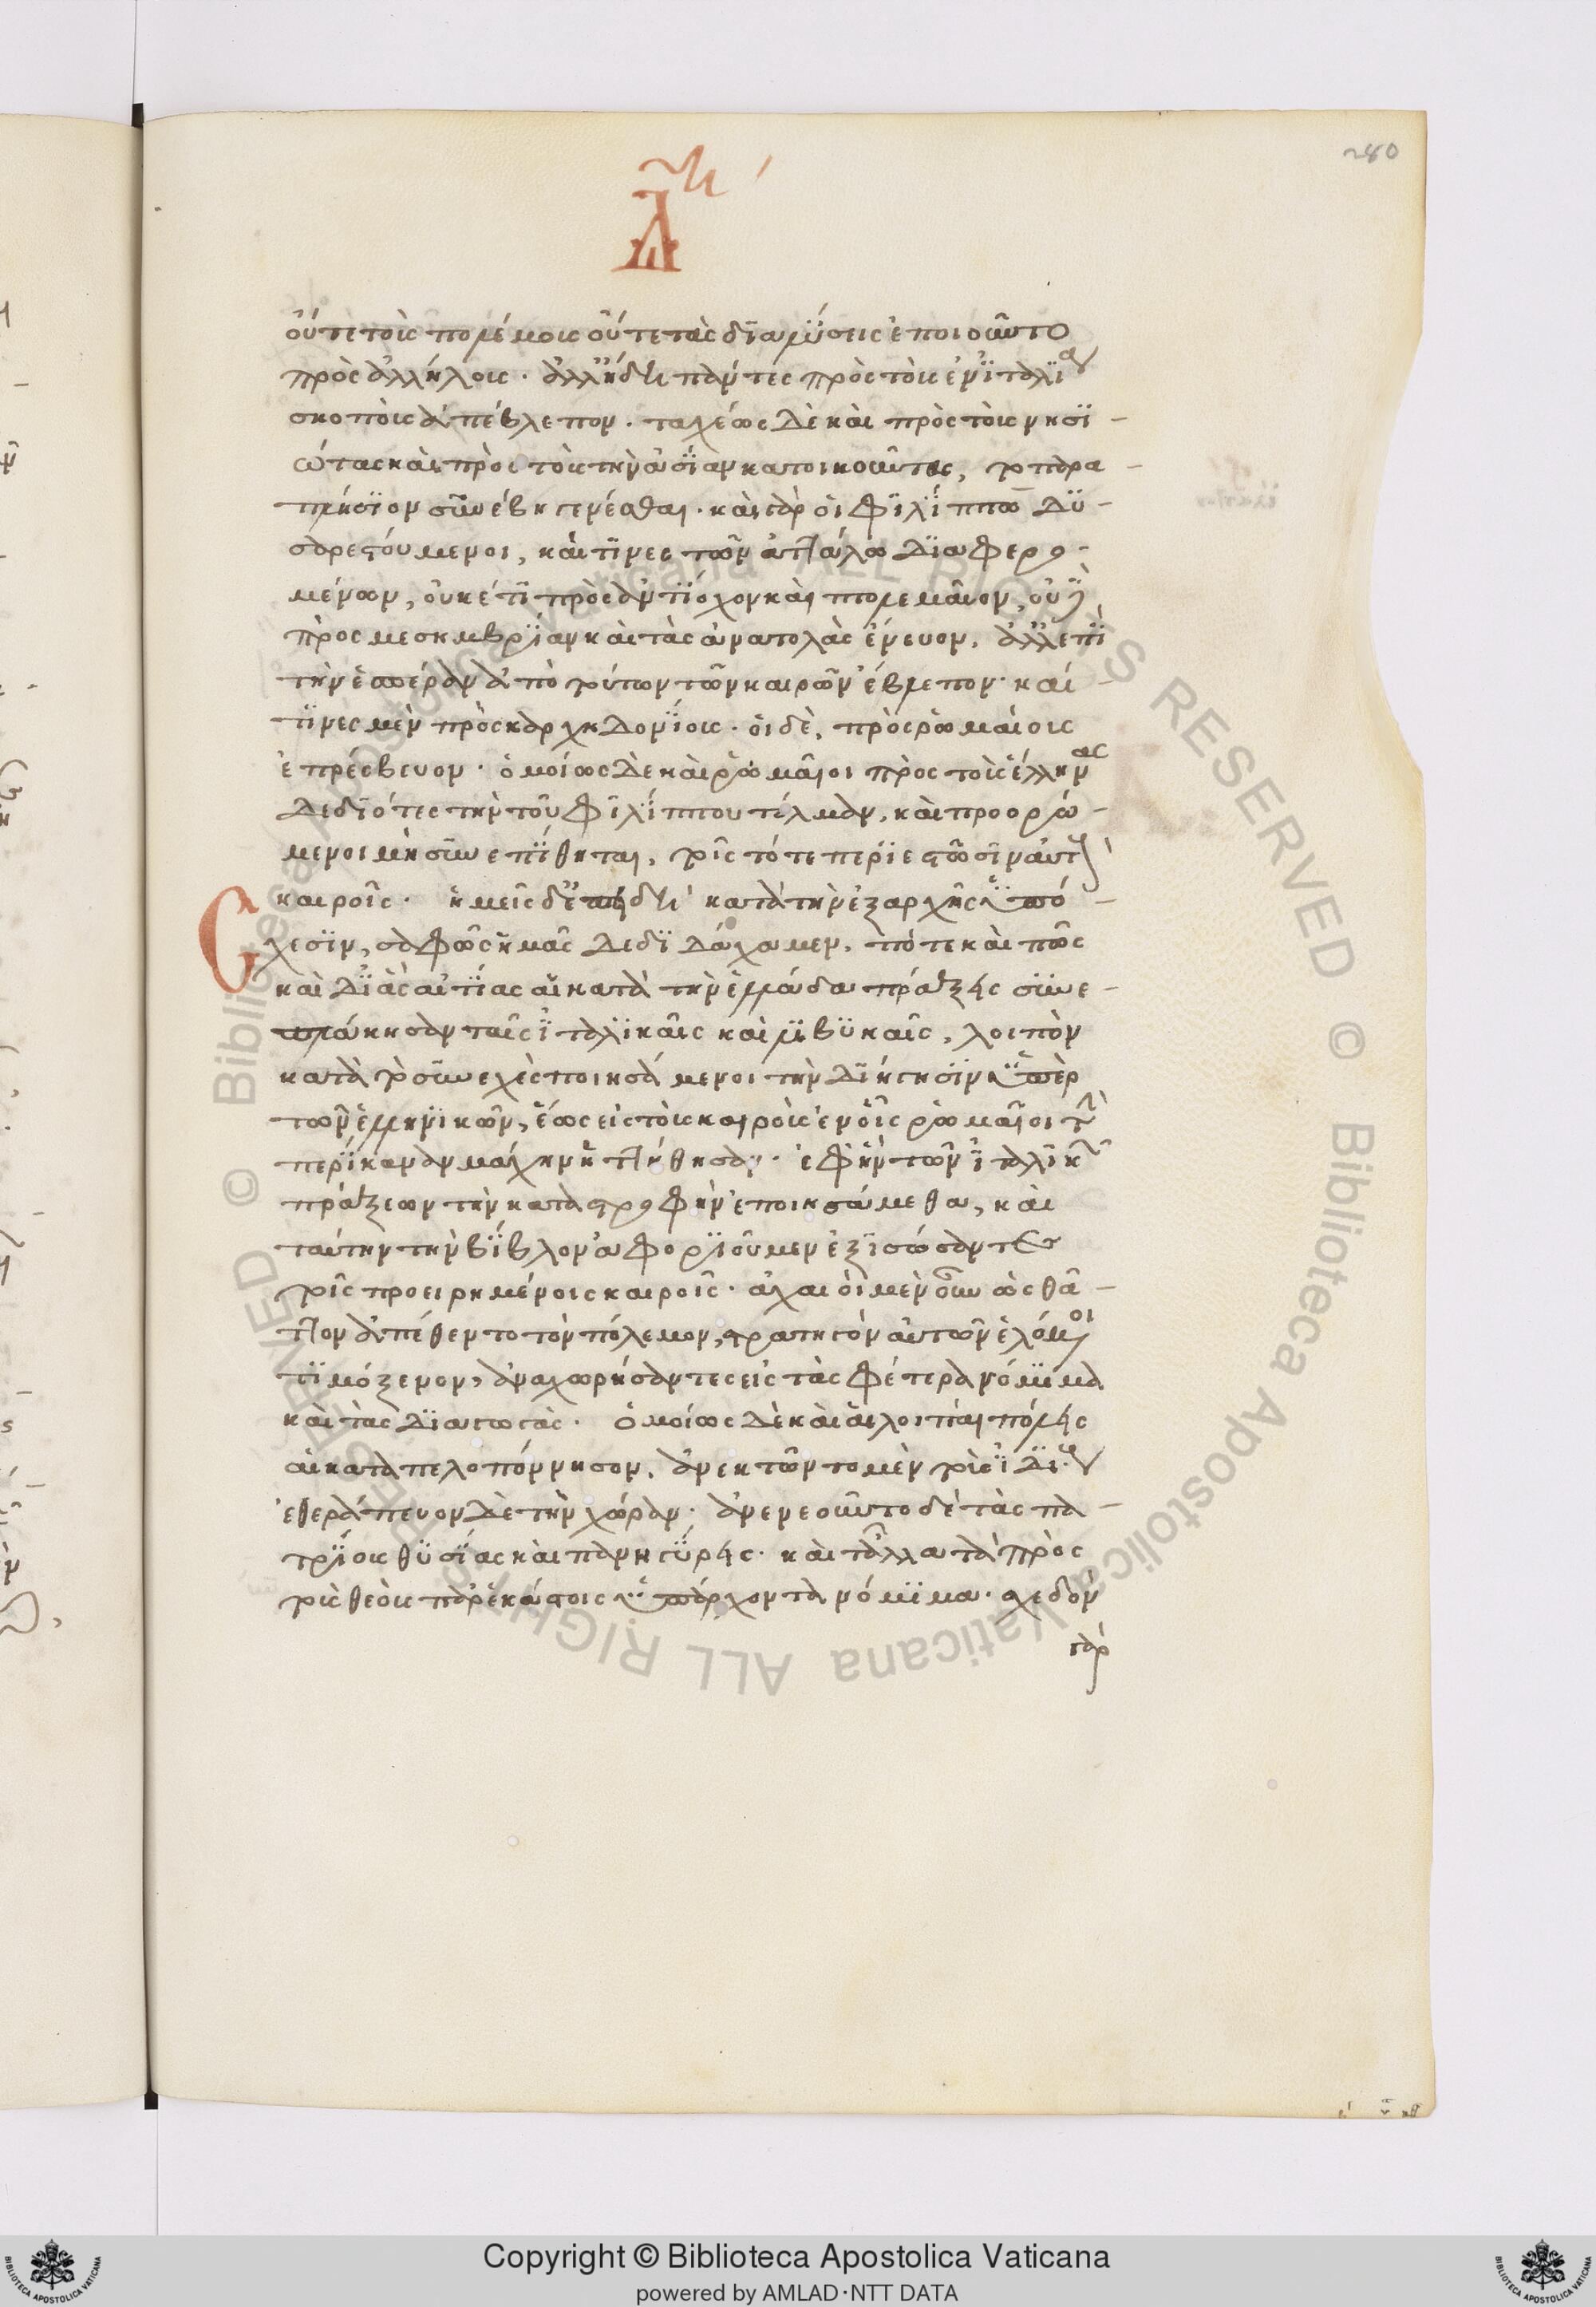 280
οὔτε τοὺς πολέμους οὔτε τὰς διαλύσεις ἐποιοῦντο
πρὸς ἀλλήλους · ἀλλ' ἤδη πάντες πρὸς τοὺς ἐν ἰταλία
σκοποὺς ἀπέβλεπον · ταχέως δὲ καὶ πρὸς τοὺς νησι -
ώτας καὶ πρὸς τοὺς τὴν ἀσίαν κατοικοῦντας, το παρα -
πλήσιον συνέβη γενέσθαι · καὶ γὰρ οἱ φιλίππω δυ -
σαρεστούμενοι, καὶ τινες τῶν ἀττάλω διαφερο -
μένων, οὐκέτι πρὸς ἀντίοχον καὶ πτολεμαῖον, οὐδὲ
πρὸς μεσημβρίαν καὶ τὰς ἀνατολὰς ἔνευον, ἀλλ' ἐπὶ
τὴν ἑσπέραν ἀπὸ τούτων τῶν καιρῶν ἔβλεπον · καί -
τινες μὲν πρὸς καρχηδονίους · οἱ δὲ, πρὸς ῥωμαίους
ἐπρέσβευον · ὁμοίως δὲ καὶ ῥωμαῖοι πρὸς τοὺς ἕλληνας
δεδιότες τὴν τοῦ φιλίππου τόλμαν, καὶ προορώ -
μενοι μὴ συνεπίθηται, τοῖς τότε περιεστῶσιν αὐτοὺς
καιροῖς · ἡμεῖς δ' ἐπειδὴ κατὰ τὴν ἐξ αρχῆς ὑπό -
σχεσιν, σαφῶς ἡμᾶς δεδιδάχαμεν, πότε καὶ πῶς
καὶ δι' ἃς αἰτίας αἱ κατὰ τὴν ἑλλάδα πράξεις συνε -
πλάκησαν ταῖς ἰταλικαῖς καὶ λιβυκαῖς, λοιπὸν
κατὰ τὸ συνεχὲς ποιησάμενοι τὴν διήγησιν ὑπὲρ
τῶν ἑλληνικῶν, ἕως εἰς τοὺς καιροὺς ἐν οἷς ῥωμαῖοι τὴν
περὶ κανὰν μάχην ἡττήθησαν · ἐφ' ἣν τῶν ἰταλικῶν
πράξεων τὴν καταστροφὴν ἐποιησάμεθα, καὶ
ταύτην τὴν βίβλον ἀφοριοῦμεν ἐξισώσαντες
τοῖς προειρημένοις καιροῖς · ἀχαιοὶ μὲν οὖν ὡς θᾶ -
ττον ἀπέθεντο τὸν πόλεμον, στρατηγὸν αὑτῶν ἑλόμενοι
τιμόξενον, ἀναχωρήσαντες εἰς τὰ σφέτερα νόμιμα
καὶ τὰς διαγωγὰς · ὁμοίως δὲ καὶ αἱ λοιπαὶ πόλεις
αἱ κατὰ πελοπόννησον, ἀνεκτῶντο μὲν τοὺς ἰδίους
ἐθεράπευον δὲ τὴν χώραν · ἀνενεοῦντο δὲ τὰς πα -
τρίους θυσίας καὶ πανηγύρεις · καὶ τἆλλα τὰ πρὸς
τοὺς θεοὺς παρ' ἑκάστοις ὑπάρχοντα νόμιμα · σχεδὸν
γὰρ